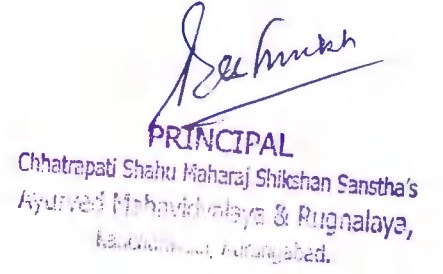 PRINCIPAL
Chhatrapati Shahu Maharaj Shikshan Sanstha's
Ayurved Mahavidyalaya & Rugnalaya,
Aurangabad.